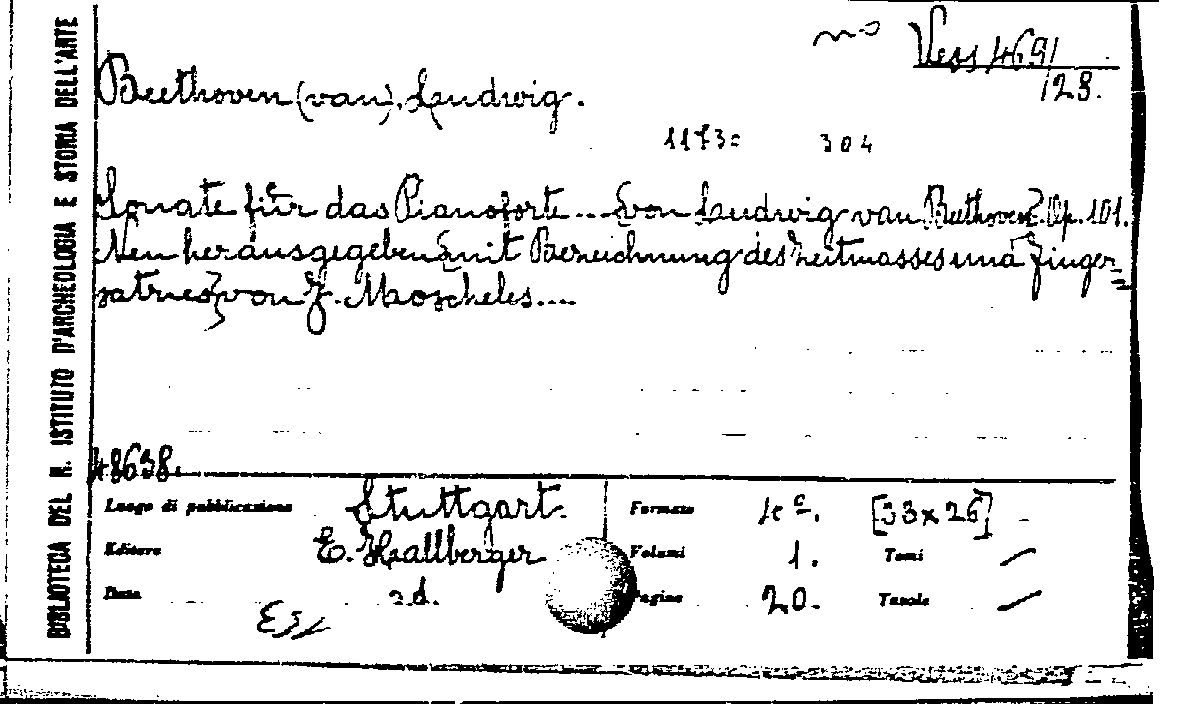 BIBLIOTECA DEL R. ISTITUTO D'ARCHEOLOGIA E STORIA DELL'ARTE
no
Vess 469/
/28.
Beethoven (van), Ludwig.
304
Sonate für das Pianoforte.... von Ludwig van Beethoven. Op. 101.
Neu herausgegeben mit Bezeichnung des Zeitmasses und Finger=
satzes von J. Moscheles....
48638.
Luogo di pubblicazione Stuttgart. Formato 4º. [33x26]
Editore E. Hallberger Volumi 1. Tomi —
Data s.d. Pagine 20. Tavole —